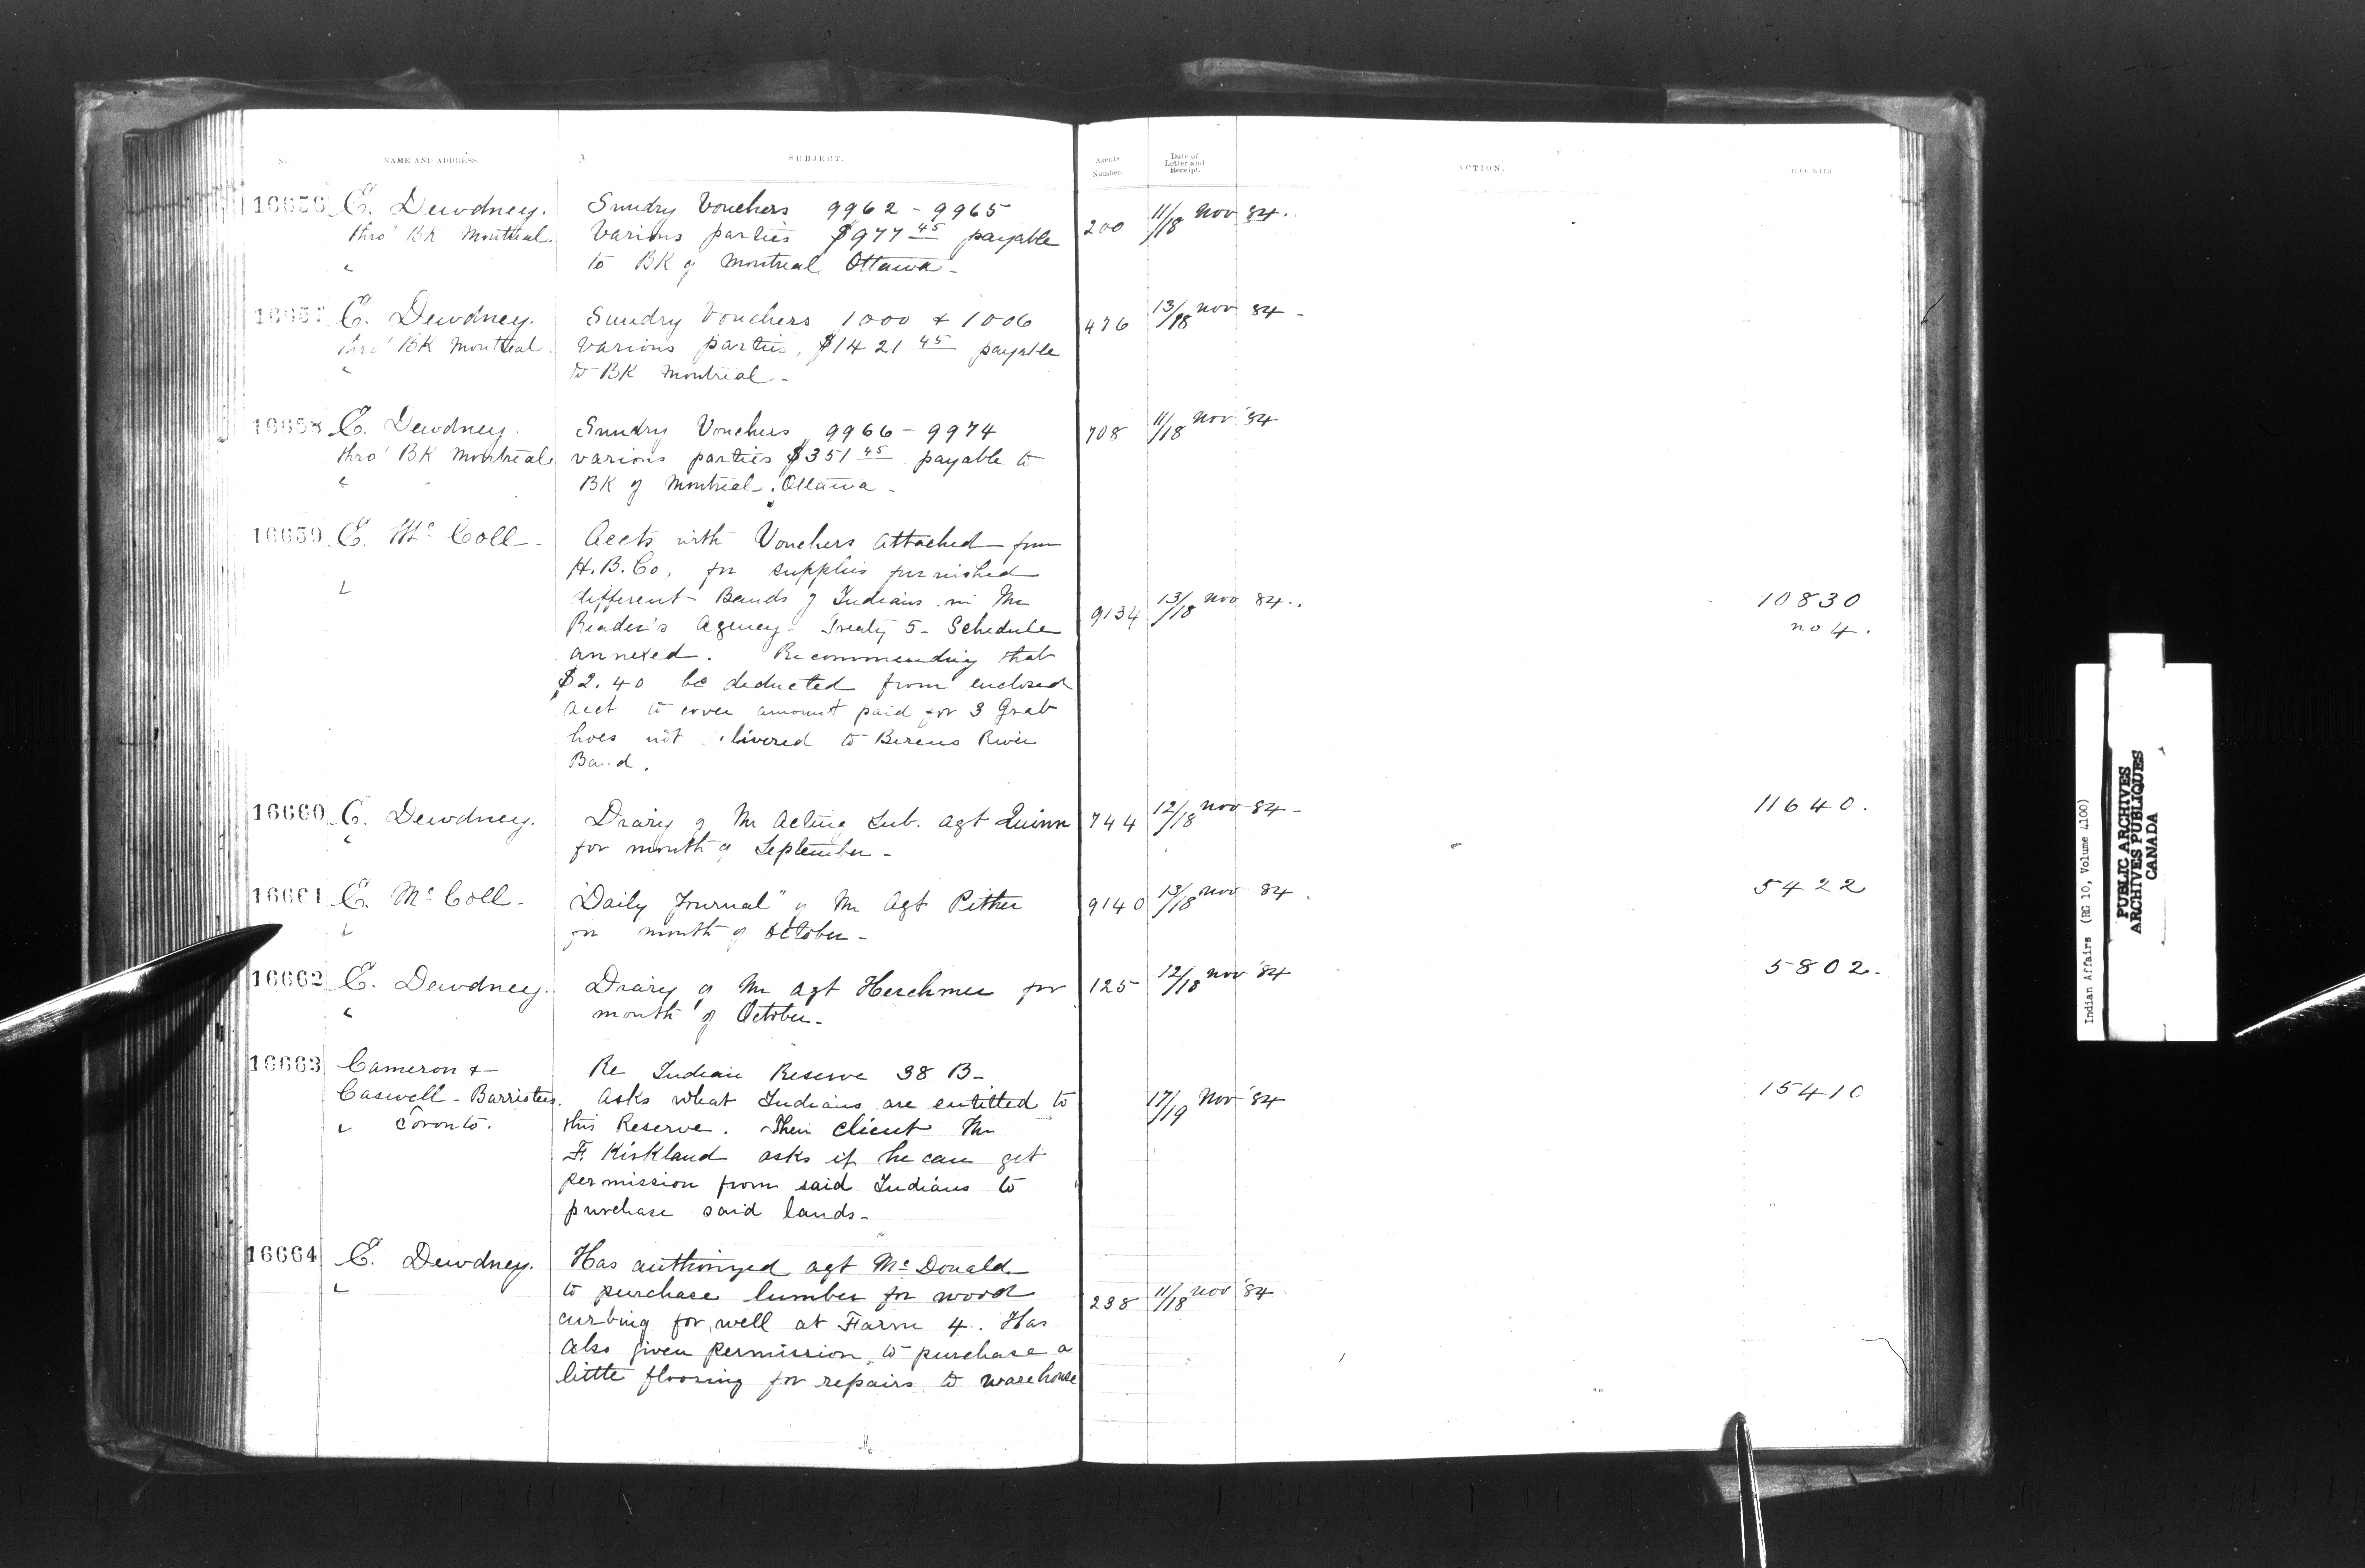 No. NAME AND ADDRESS. SUBJECT. Agents Number. Date of Letter and Receipt. ACTION. FILED WITH
16656 E. Dewdney. Sundry Vouchers 9962 - 9965 200 11/18 Nov 84.
thro' BK Montreal. Various parties $977 45 payable
to BK of Montreal Ottawa -
16657 E. Dewdney. Sundry Vouchers 1000 & 1006 476 13/18 Nov 84 -
thro' BK Montreal. Various parties, $1421 45 payable
to BK Montreal -
16658 E. Dewdney. Sundry Vouchers 9966 - 9974 708 11/18 Nov '84
thro' BK Montreal various parties $351 45 payable to
BK of Montreal. Ottawa -
16659 E. Mc Coll - Accts with Vouchers attached from
H.B.Co. for supplies furnished
different Bands of Indians in Mr 9134 13/18 Nov 84. 10830
Reader's Agency - Treaty 5 - Schedule no 4.
annexed. Recommending that
$2.40 be deducted from enclosed
acct to cover amount paid for 3 Grab
hoes not livered to Berens River
Band.
16660 E. Dewdney. Diary of Mr Acting Sub. Agt Quinn 744 12/18 Nov 84 - 11640.
for month of September -
16661 E. Mc Coll - "Daily Journal" of Mr Agt Pither 9140 13/18 Nov 84. 5422
for month of October -
16662 E. Dewdney. Diary of Mr Agt Herchmer for 125 12/18 Nov '84 5802.
month of October -
16663 Cameron & Re Indian Reserve 38 B -
Caswell - Barristers. Asks what Indians are entitled to 17/19 Nov '84 15410
Toronto. this Reserve. Their client Mr
F. Kirkland asks if he can get
permission from said Indians to
purchase said lands -
16664 E. Dewdney. Has authorized agt Mc Donald
to purchase lumber for wood 238 11/18 Nov '84
curbing for well at Farm 4. Has
also given permission to purchase a
little flooring for repairs to warehouse
Indian Affairs (RG 10, Volume 4100)
PUBLIC ARCHIVES
ARCHIVES PUBLIQUES
CANADA